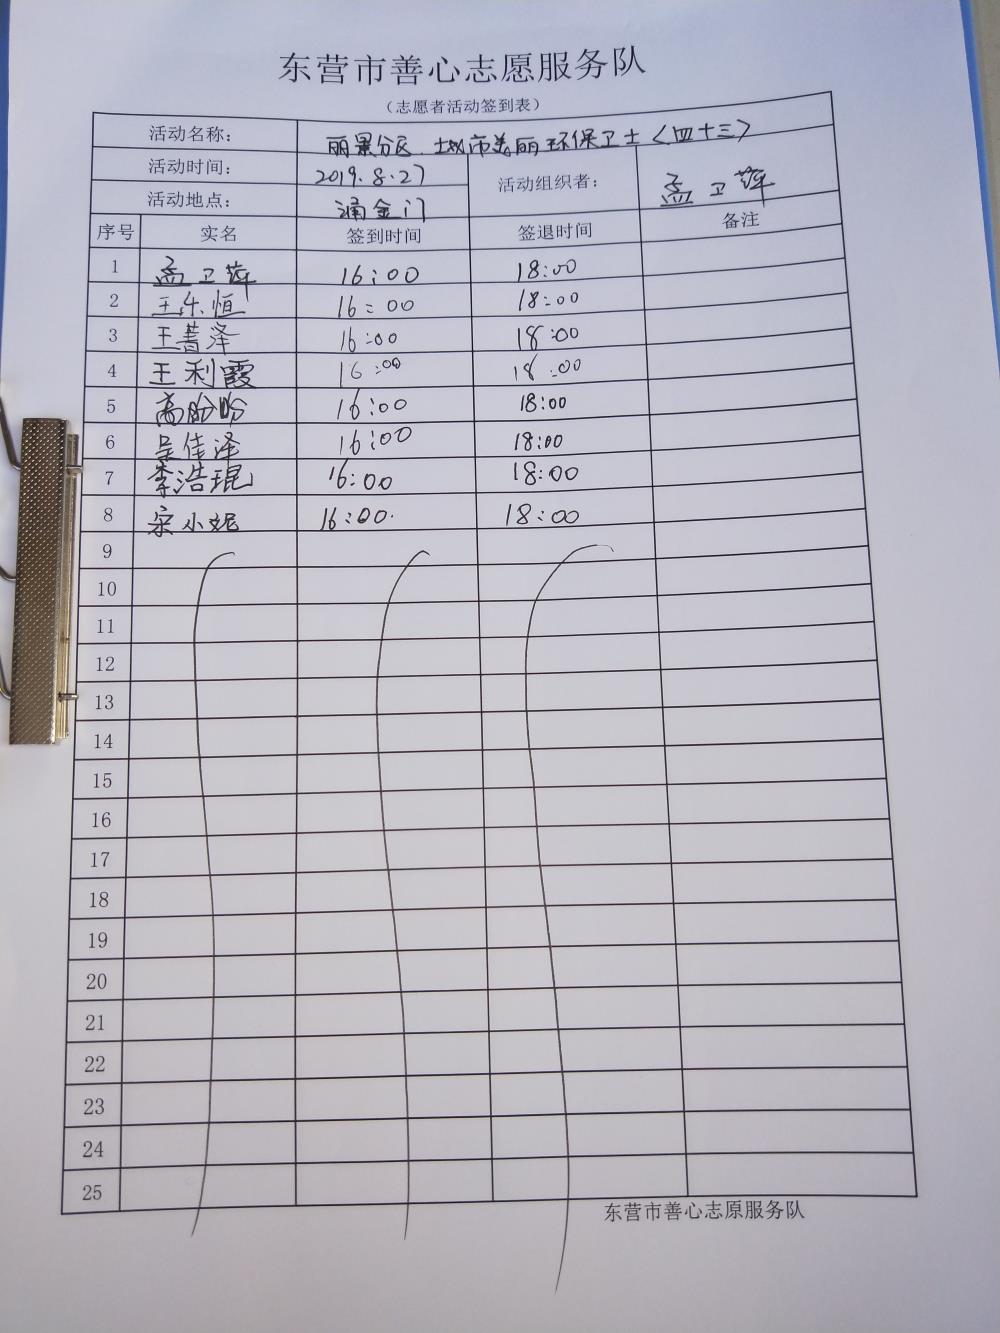 东营市善心志愿服务队
（志愿者活动签到表）
活动名称： 丽景分区 城市美丽环保卫士〈四十三〉
活动时间： 2019.8.27 活动组织者： 孟卫萍
活动地点： 涌金门
序号 实名 签到时间 签退时间 备注
1 孟卫萍 16:00 18:00
2 王乐恒 16:00 18:00
3 王菁泽 16:00 18:00
4 王利霞 16:00 18:00
5 高盼盼 16:00 18:00
6 吴佳泽 16:00 18:00
7 李浩琨 16:00 18:00
8 宋小妮 16:00. 18:00
9
10
11
12
13
14
15
16
17
18
19
20
21
22
23
24
25
东营市善心志原服务队